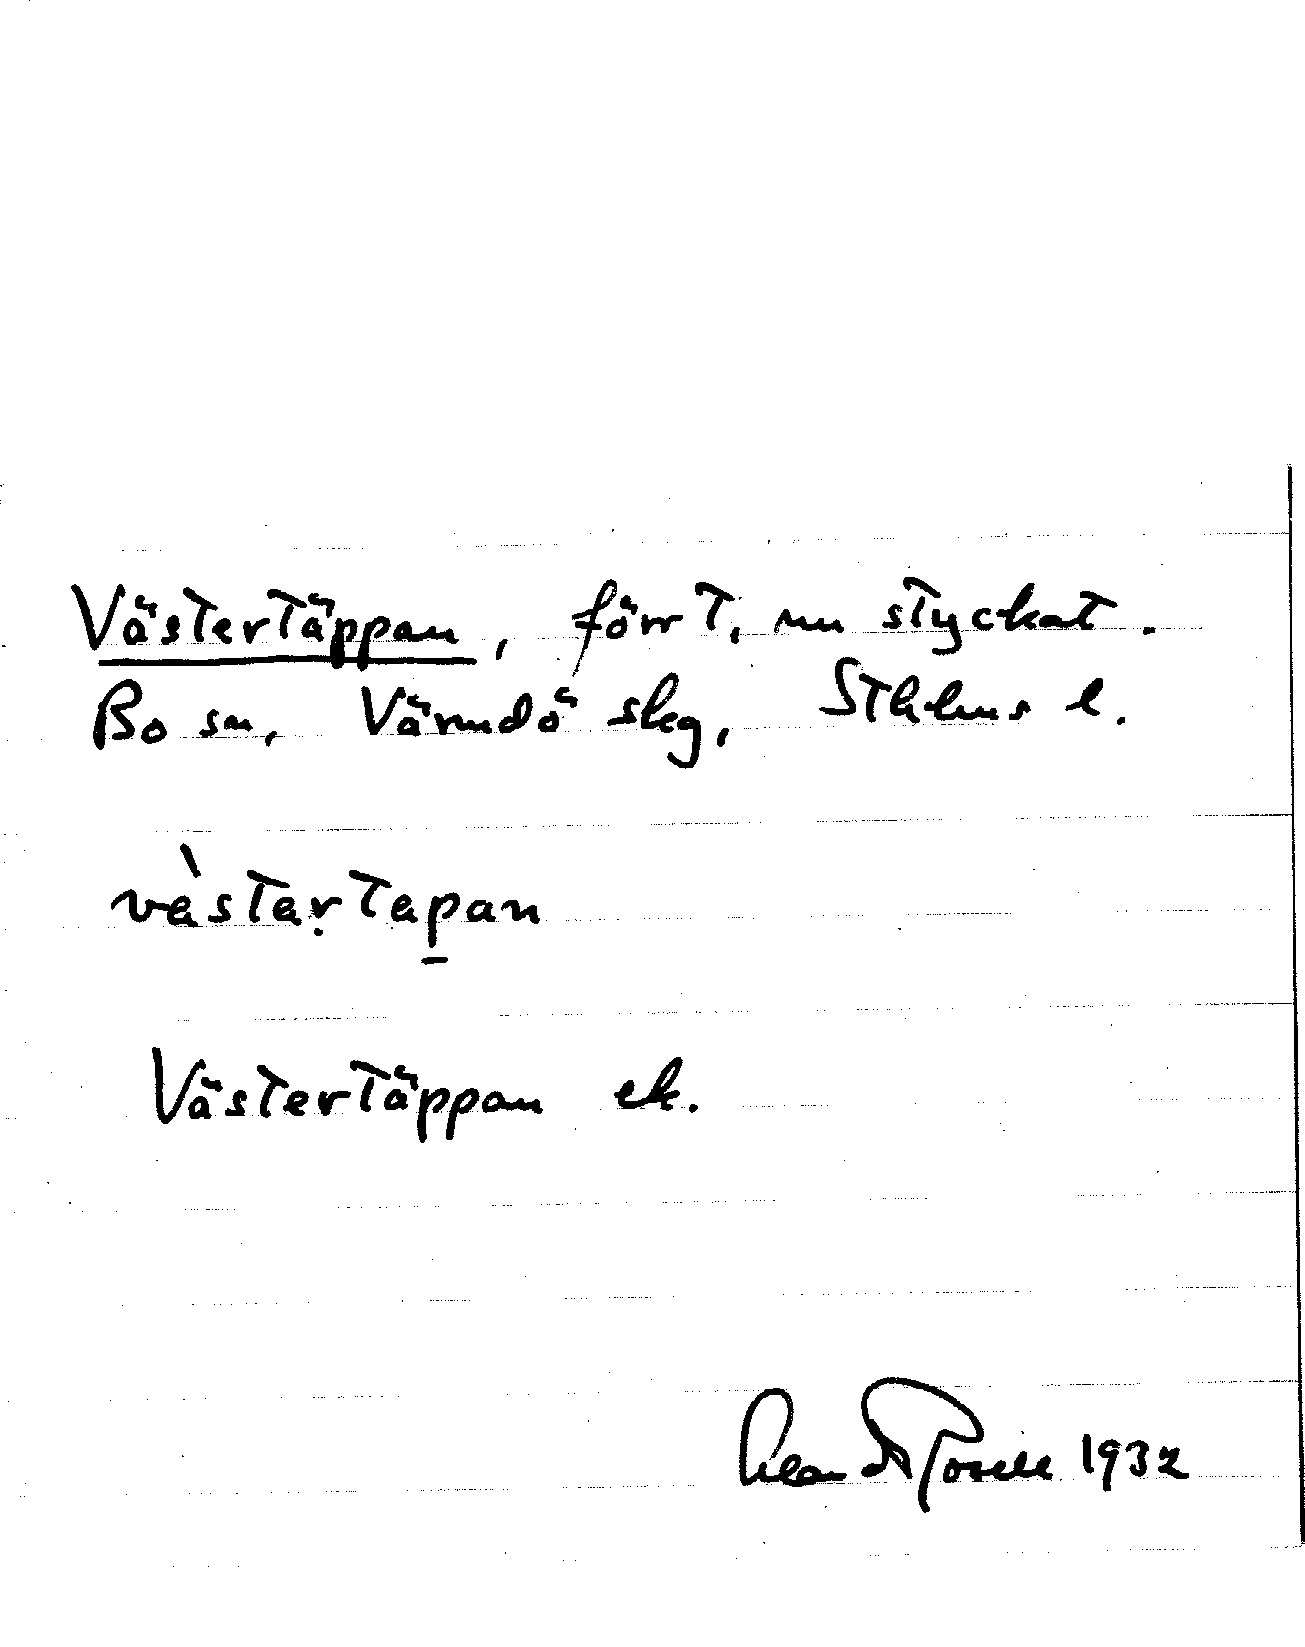 Västertäppan, förr T, nu styckat.
Bo sn, Värmdö skg, Sthlms l.
vàstərtapan
Västertäppan ek.
1932